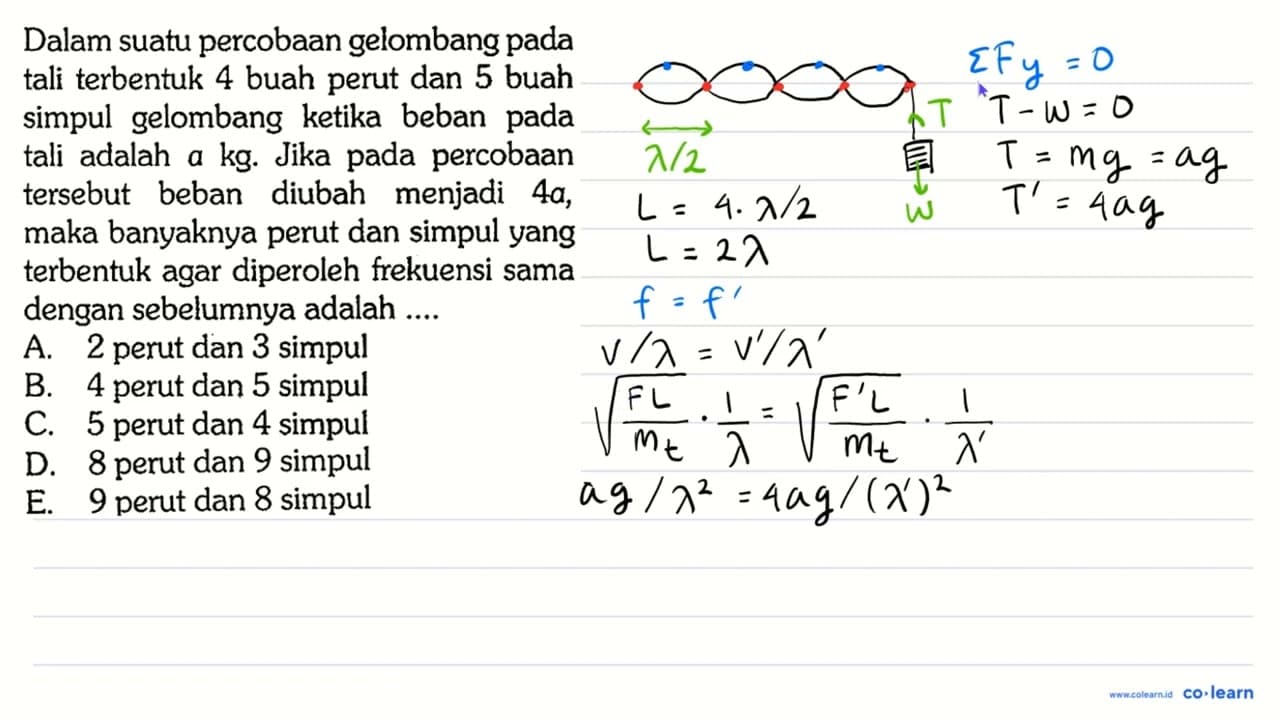 Dalam suatu percobaan gelombang pada
tali terbentuk 4 buah perut dan 5 buah
simpul gelombang ketika beban pada
tali adalah a kg. Jika pada percobaan
tersebut beban diubah menjadi 4a,
maka banyaknya perut dan simpul yang
terbentuk agar diperoleh frekuensi sama
dengan sebelumnya adalah ....
A. 2 perut dan 3 simpul
B. 4 perut dan 5 simpul
C. 5 perut dan 4 simpul
D. 8 perut dan 9 simpul
E. 9 perut dan 8 simpul
T
λ/2
w
L = 4. λ/2
L = 2λ
ΣFy = 0
T - w = 0
T = mg = ag
T' = 4ag
f = f'
v/λ = v'/λ'
√(FL/mt) . 1/λ = √(F'L/mt) . 1/λ'
ag/λ² = 4ag/(λ')²
www.colearn.id co·learn